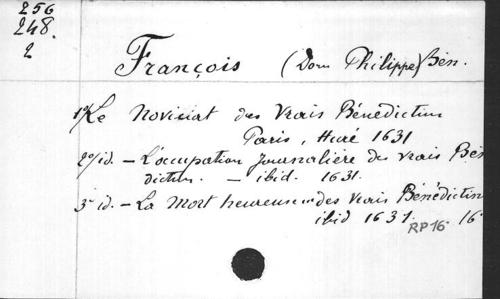 256
248.
2
François (Dom Philippe) Bén.
1º/ Le Noviciat des Vrais Bénédictins
Paris, Huré 1631
2º/ id. – L'occupation journalière des vrais Béné
dictins. – ibid. 1631.
3º id. – La Mort heureuse des Vrais Bénédictins
ibid 1631. 16º
RP16